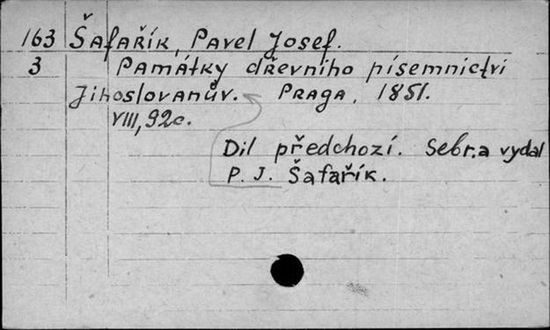 163 Šafařík, Pavel Josef.
3 Památky dřevního písemnictvi
Jihoslovanův. Praga, 1851.
VIII, 92c.
Dil předchozí. Sebr. a vydal
P. J. Šafařík.